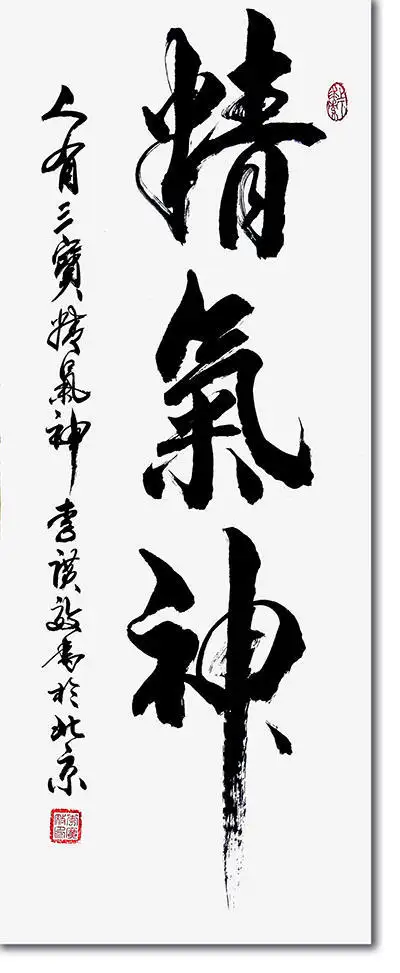 精氣神
人有三寶精氣神 李 書於北京